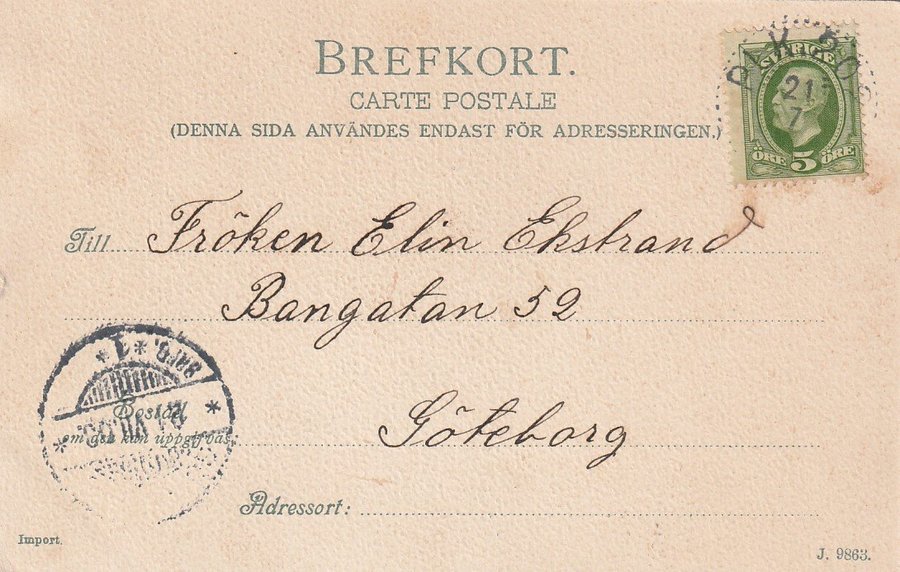 BREFKORT.
CARTE POSTALE
(DENNA SIDA ANVÄNDES ENDAST FÖR ADRESSERINGEN.)
SVERIGE
21
7
ÖRE 5 ÖRE
Till Fröken Elin Ekstrand
Bangatan 52
Bostad
om den kan uppgifvas:
Göteborg
Adressort:
Import.
J. 9863.